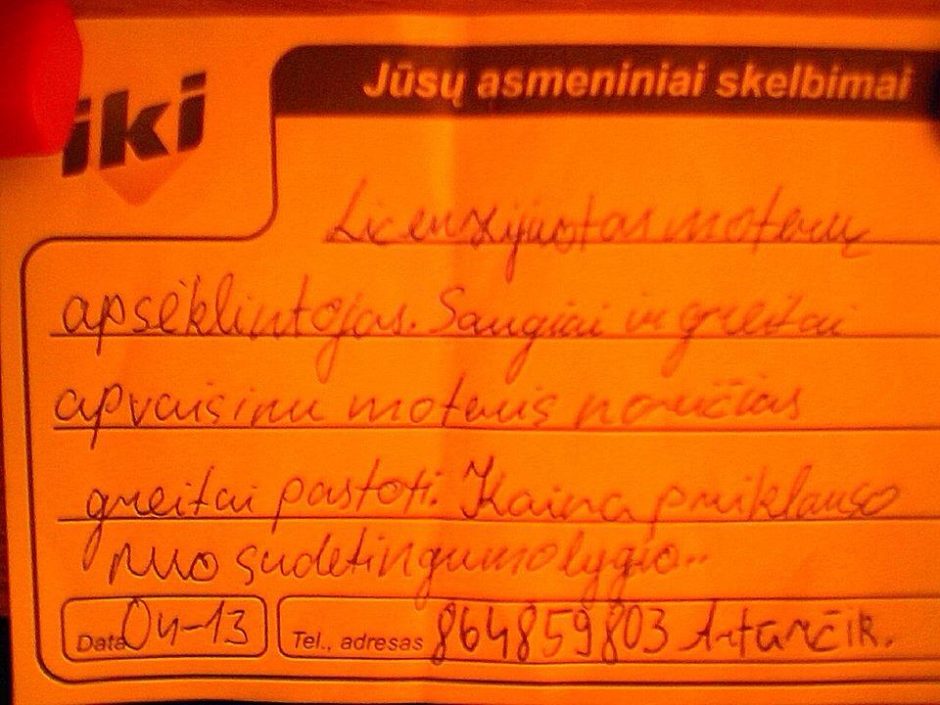 iki
Jūsų asmeniniai skelbimai
Licenzijuotas moterų
apsėklintojas. Saugiai ir greitai
apvaisinu moteris norinčias
greitai pastoti. Kaina priklauso
nuo sudėtingumo lygio..
Data 04-13
Tel., adresas 864859803